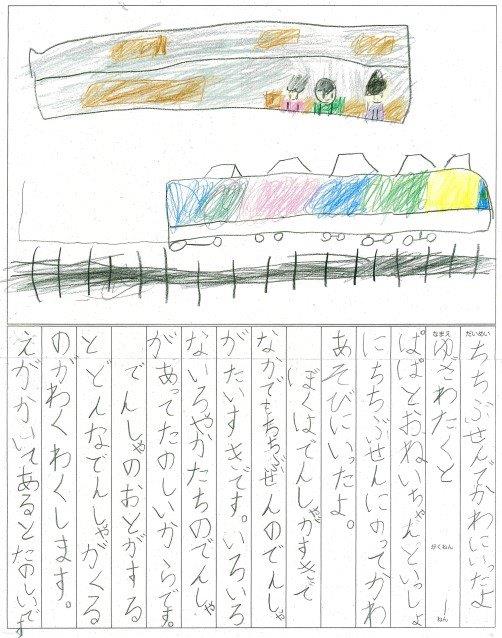 だいめい ちちぶせんでかわにいったよ
なまえ ゆざわたくと がくねん 1ねん
ぱぱとおねいちゃんといっしょ
にちちぶせんにのってかわ
あそびにいったよ。
ぼくはでんしゃがすきで
なかでもちちぶせんのでんしゃ
がたいすきです。いろいろ
ないろやかたちのでんしゃ
があってたのしいからです。
でんしゃのおとがする
とどんなでんしゃがくる
のがわくわくします。
えがかいてあるとたのしいです